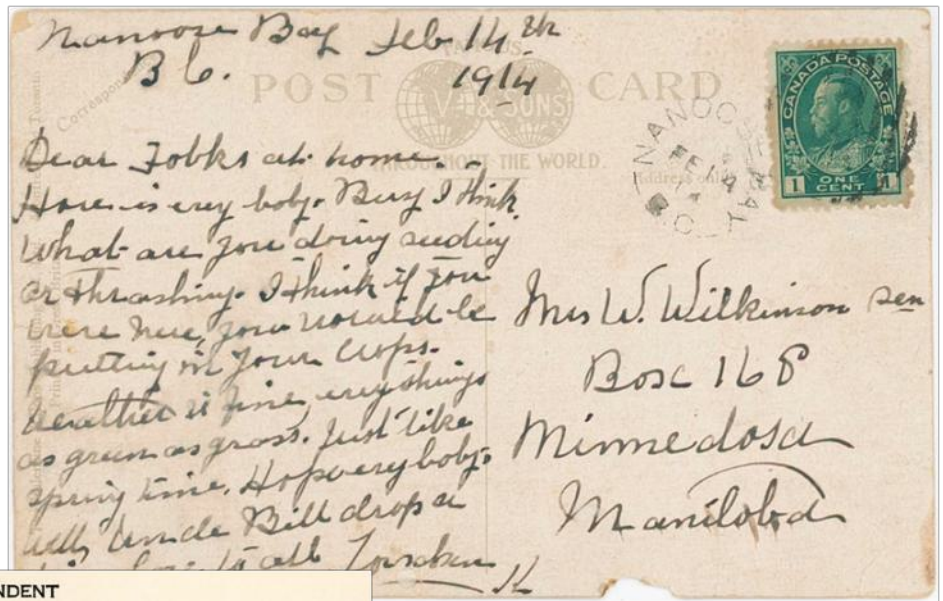 Nanoose Bay Feb 14th
B C. 1914
VALENTINE'S
POST CARD
V & SONS
THROUGHOUT THE WORLD.
Correspon
Address only
NANOOSE BAY
FE 14
14
B.C.
CANADA POSTAGE
1 ONE CENT 1
Dear Folks at home.
How is ery body. Busy I think
What are you doing seeding
or thrashing. I think if you
were here, you would be
putting in your crops.
Weather is fine, erything
as green as grass. Just like
spring time. Hope ery body
well, Uncle Bill drops a
to all
Mrs W. Wilkinson sen
Box 168
Minnedosa
Manitoba
NDENT